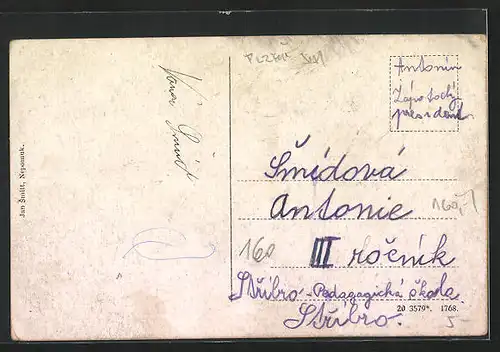 Antonín
Zápotocký
president.
Šmídová
Antonie
III ročník
Stříbro - Pedagogická škola
Stříbro.
160
160,-
Jan Šmilt, Nepomuk.
20 3579*. 1768.
5-